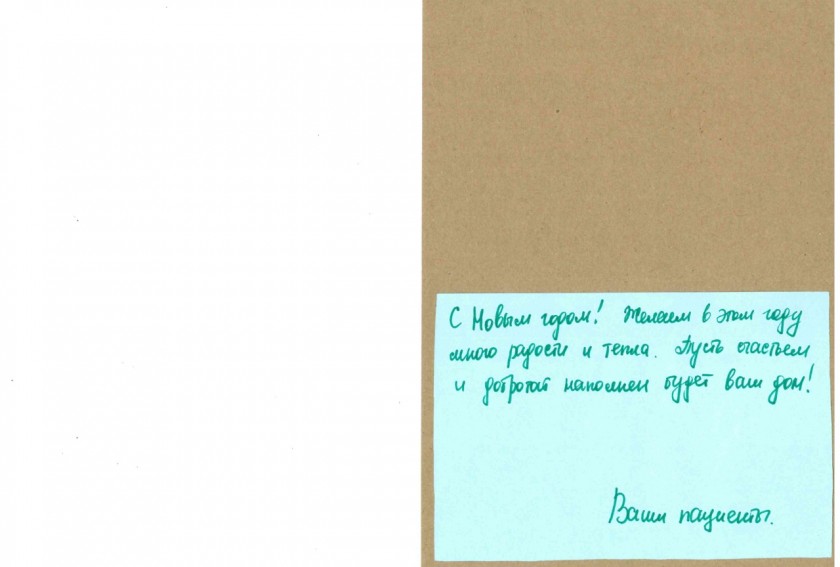 С Новым годом! Желаем в этом году
много радости и тепла. Пусть счастьем
и добротой наполнен будет ваш дом!
Ваши пациенты.